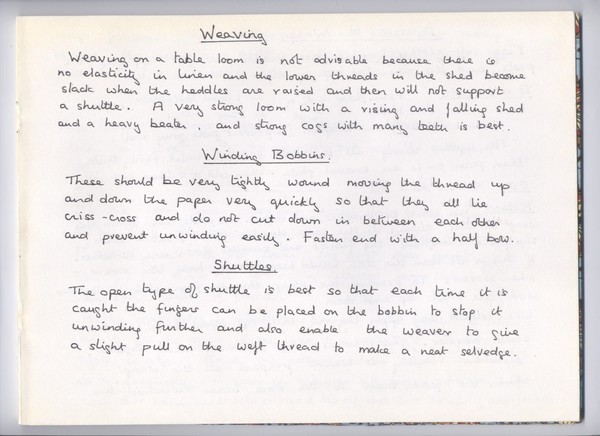 Weaving
Weaving on a table loom is not advisable because there is
no elasticity in linen and the lower threads in the shed become
slack when the heddles are raised and then will not support
a shuttle. A very strong loom with a rising and falling shed
and a heavy beater, and strong cogs with many teeth is best.
Winding Bobbins.
These should be very tightly wound moving the thread up
and down the paper very quickly so that they all lie
criss-cross and do not cut down in between each other
and prevent unwinding easily. Fasten end with a half bow.
Shuttles.
The open type of shuttle is best so that each time it is
caught the fingers can be placed on the bobbin to stop it
unwinding further and also enable the weaver to give
a slight pull on the weft thread to make a neat selvedge.